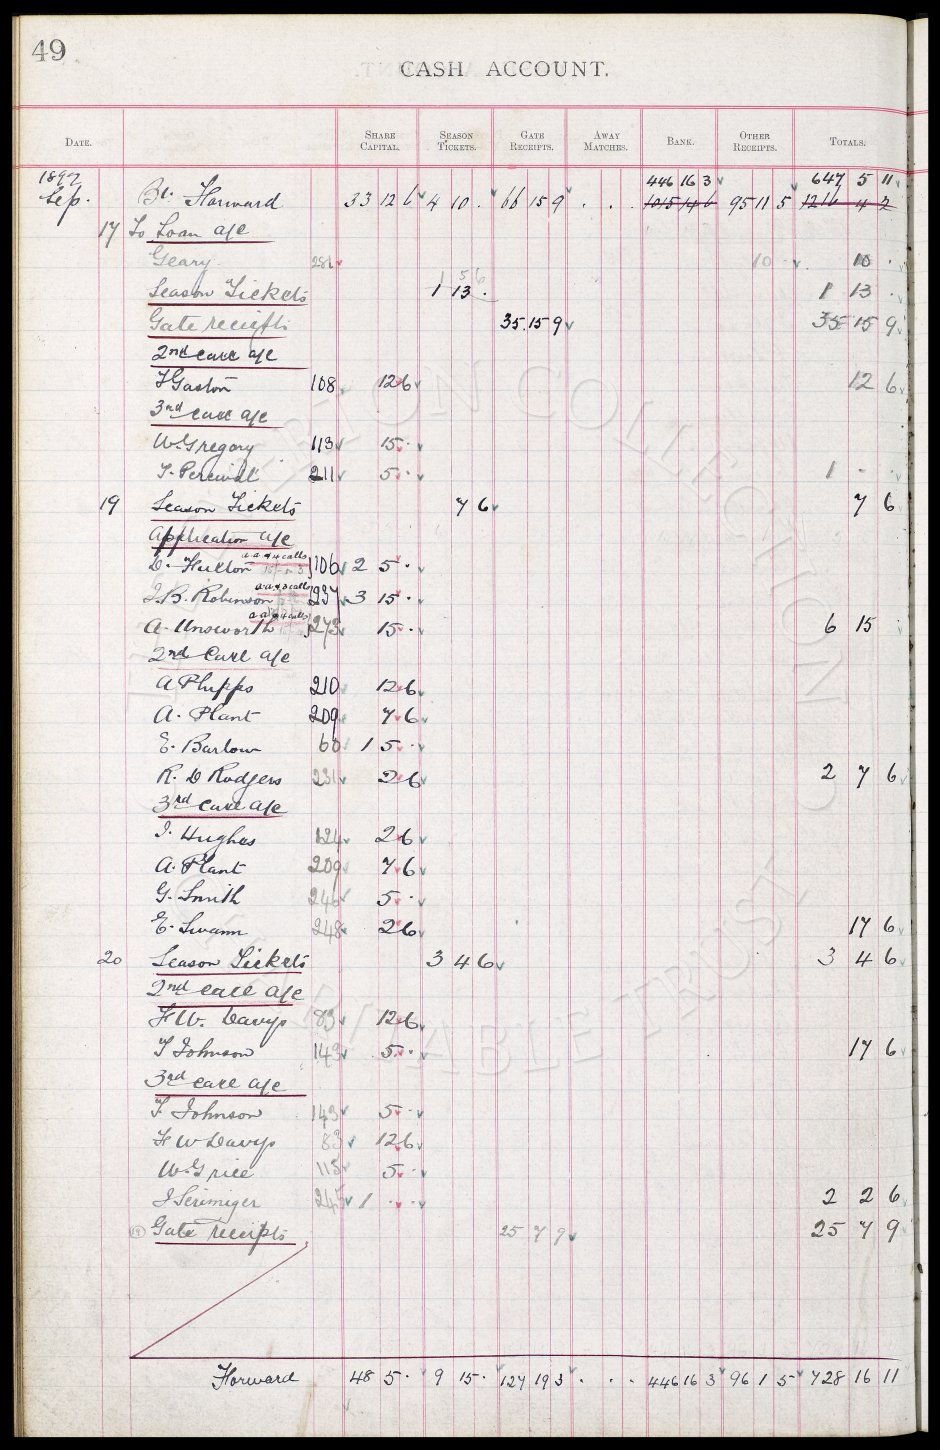 49
CASH ACCOUNT.
DATE. SHARE CAPITAL. SEASON TICKETS. GATE RECEIPTS. AWAY MATCHES. BANK. OTHER RECEIPTS. TOTALS.
1897 446 16 3 647 5 11
Sep. Bt. Forward 33 12 6 4 10 . 66 15 9 . . . 1015 14 6 95 11 5 1216 4 2
17 To Loan a/c
Geary 281 10 . 10 .
Season Tickets 1 13 . 1 13 .
Gate receipts 35 15 9 35 15 9
2nd call a/c
F Gaston 108 12 6 12 6
3rd call a/c
W. Gregory 113 15 .
T. Percival 211 5 . 1 - .
19 Season Tickets 7 6 7 6
Application a/c
D. Fulton a a & 4 calls 106 2 5 .
J. B. Robinson a a & 3 calls 237 3 15 .
A. Unsworth a a & 4 calls 273 15 . 6 15 .
2nd Call a/c
A Phipps 210 12 6
A. Plant 209 7 6
E. Barlow 60 1 5 .
R. D Rodgers 231 2 6 2 7 6
3rd call a/c
J. Hughes 124 2 6
A. Plant 209 7 6
G. Smith 246 5 .
E. Swann 248 2 6 17 6
20 Season Tickets 3 4 6 3 4 6
2nd call a/c
F W. Davys 83 12 6
T Johnson 143 5 . 17 6
3rd call a/c
T. Johnson 143 5 .
F W Davys 83 12 6
W. Grice 115 5 .
J Scrimiger 245 1 . . 2 2 6
(19) Gate receipts 25 7 9 25 7 9
Forward 48 5 . 9 15 . 127 19 3 . . . 446 16 3 96 1 5 728 16 11